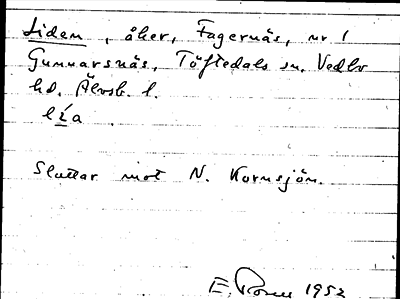 Liden, åker, Fagernäs, nr 1
Gunnarsnäs, Töftedals sn. Vedbo
hd. Älvsb. l.
Sluttar mot N. Kornsjön.
E. 1952